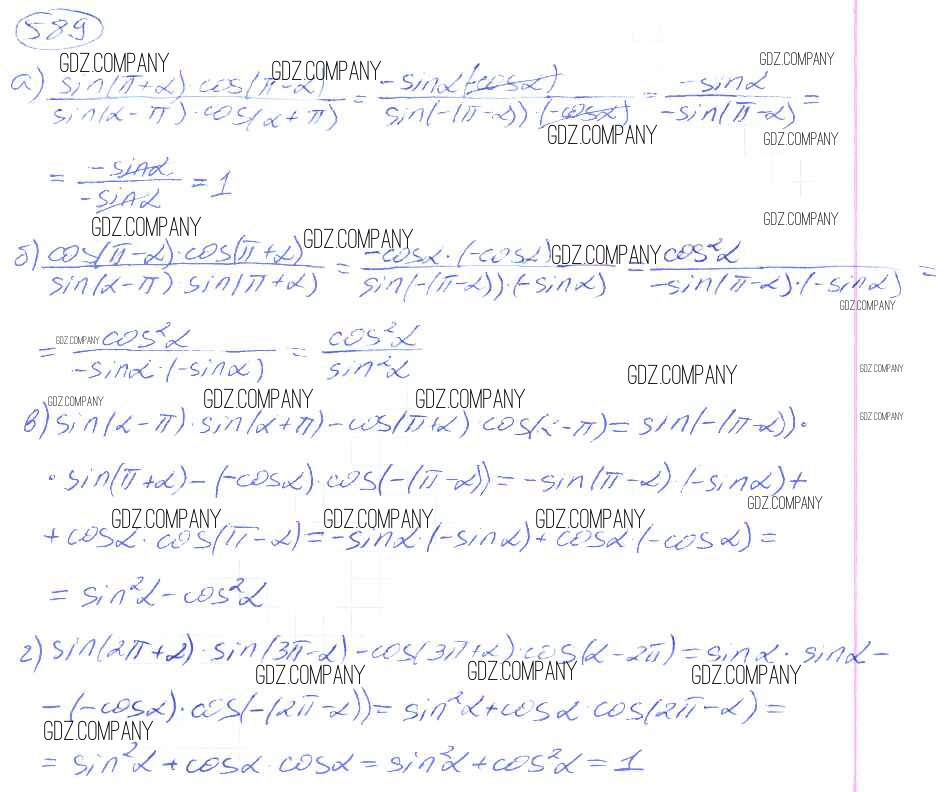 589
GDZ.COMPANY GDZ.COMPANY GDZ.COMPANY
а) sin(π+α)·cos(π-α) / sin(α-π)·cos(α+π) = -sinα(-cosα) / sin(-(π-α))·(-cosα) = -sinα / -sin(π-α) =
GDZ.COMPANY GDZ.COMPANY
= -sinα / -sinα = 1
GDZ.COMPANY GDZ.COMPANY GDZ.COMPANY GDZ.COMPANY
б) cos(π-α)·cos(π+α) / sin(α-π) sin(π+α) = -cosα·(-cosα) / sin(-(π-α))·(-sinα) = cos²α / -sin(π-α)·(-sinα) =
GDZ.COMPANY
= cos²α / -sinα·(-sinα) = cos²α / sin²α
GDZ.COMPANY GDZ.COMPANY GDZ.COMPANY
GDZ.COMPANY GDZ.COMPANY GDZ.COMPANY GDZ.COMPANY
в) sin(α-π)·sin(α+π)-cos(π+α) cos(α-π)= sin(-(π-α))·
· sin(π+α)-(-cosα)·cos(-(π-α))= -sin(π-α)·(-sinα)+
GDZ.COMPANY GDZ.COMPANY GDZ.COMPANY GDZ.COMPANY
+cosα·cos(π-α)= -sinα·(-sinα)+cosα·(-cosα)=
= sin²α-cos²α
г) sin(2π+α)·sin(3π-α)-cos(3π+α)·cos(α-2π)=sinα·sinα-
GDZ.COMPANY GDZ.COMPANY GDZ.COMPANY
-(-cosα)·cos(-(2π-α))= sin²α+cosα·cos(2π-α)=
GDZ.COMPANY
= sin²α+cosα·cosα= sin²α+cos²α=1